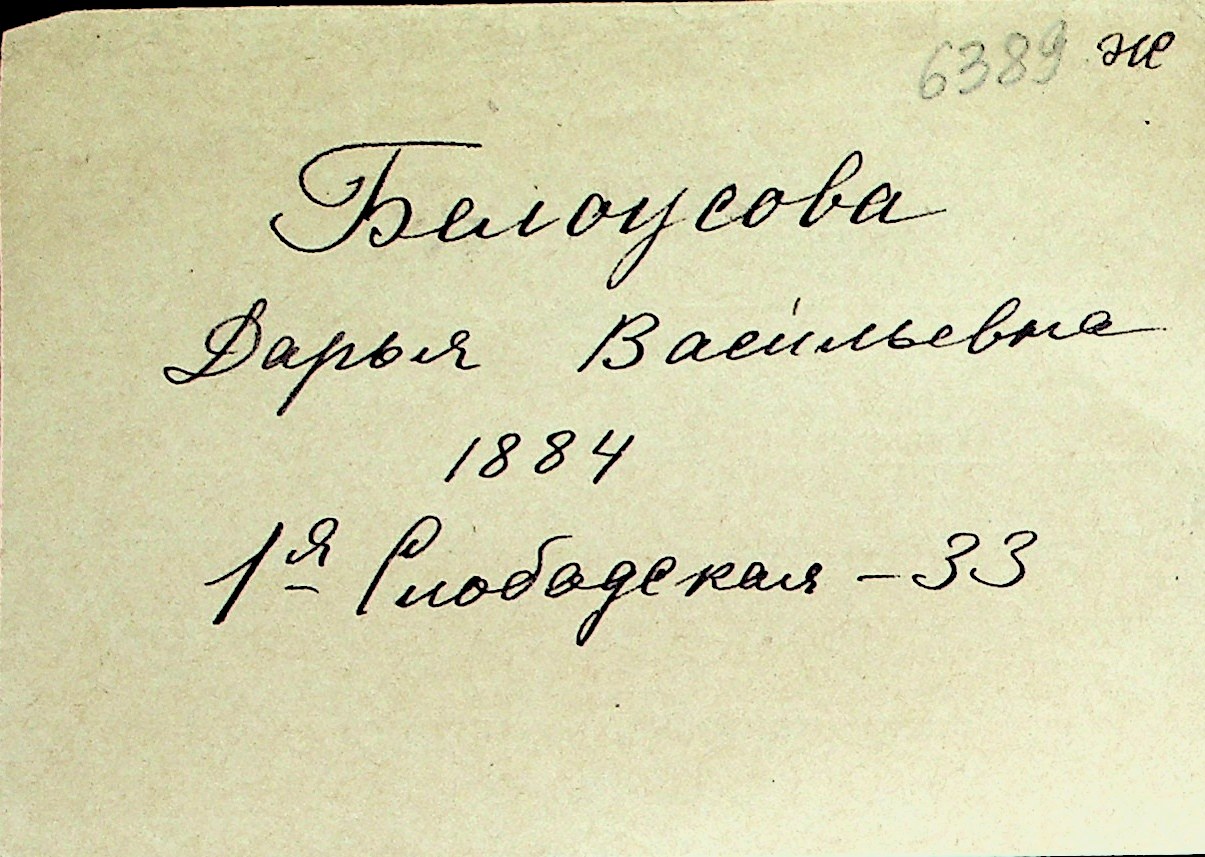 6389 ж
Белоусова
Дарья Васильевна
1884
1я Слободская - 33